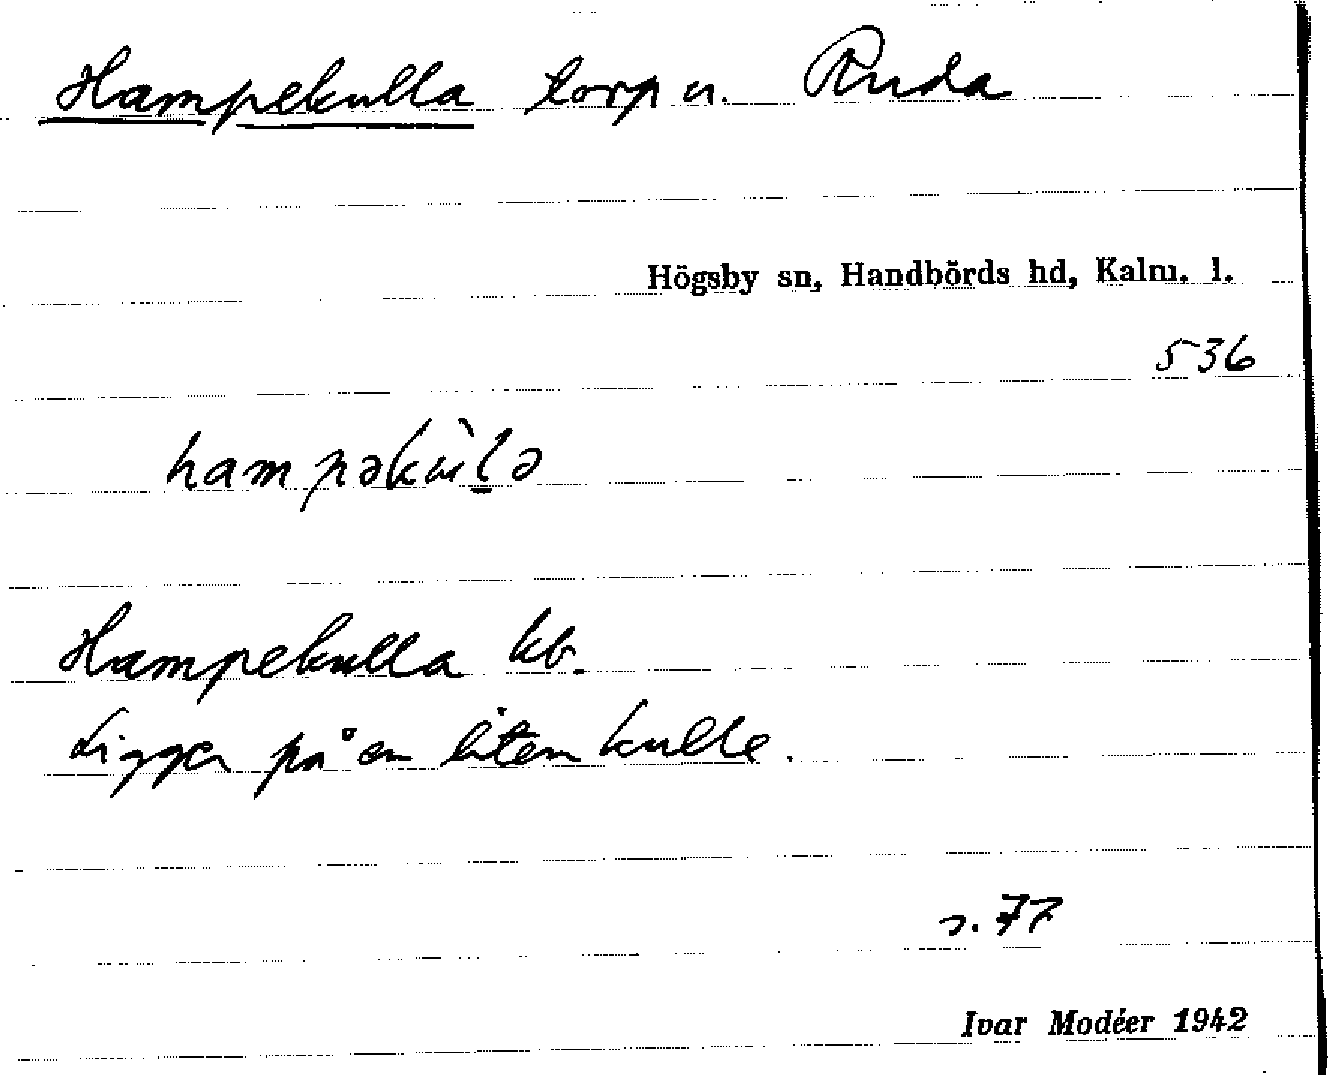 Hampekulla torp u. Ruda
Högsby sn, Handbörds hd, Kalm. l.
536
hampəkùlə
Hampekulla kb.
Ligger på en liten kulle.
s. 77
Ivar Modéer 1942